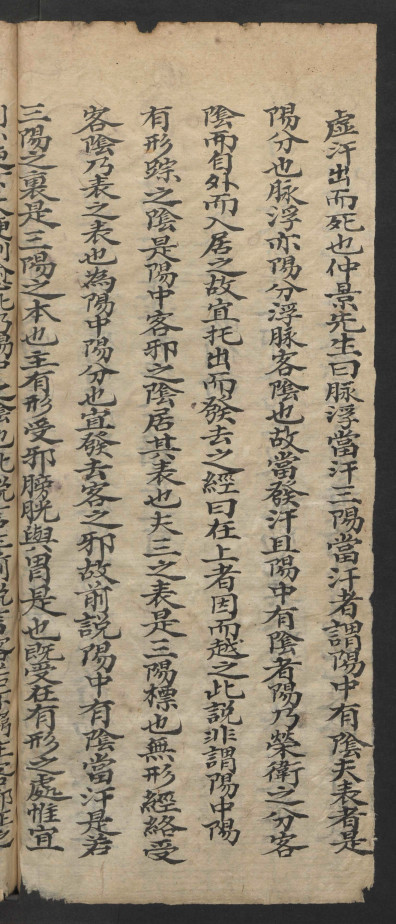 虛汗出而死也仲景先生曰脉浮當汗三陽當汗者謂陽中有陰夫表者是
陽分也脉浮亦陽分浮脉客陰也故當發汗且陽中有陰者陽乃榮衛之分客
陰而自外而入居之故宜托出而發去之經曰在上者因而越之此說非謂陽中陽
有形踪之陰是陽中客邪之陰居其表也夫三之表是三陽標也無形經絡受
客陰乃表之表也為陽中陽分也宜發去客之邪故前說陽中有陰當汗是若
三陽之裏是三陽之本也主有形受邪膀胱與胃是也既受在有形之處惟宜